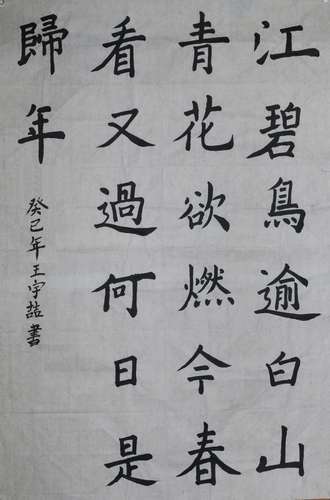 江碧鳥逾白山
青花欲燃今春
看又過何日是
歸年
癸巳年王宇喆書